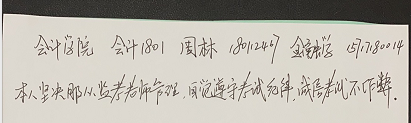 会计学院 会计1801 周林 18011247 金融学 15717180014
本人坚决服从监考老师管理,自觉遵守考试纪律,诚信考试不作弊.